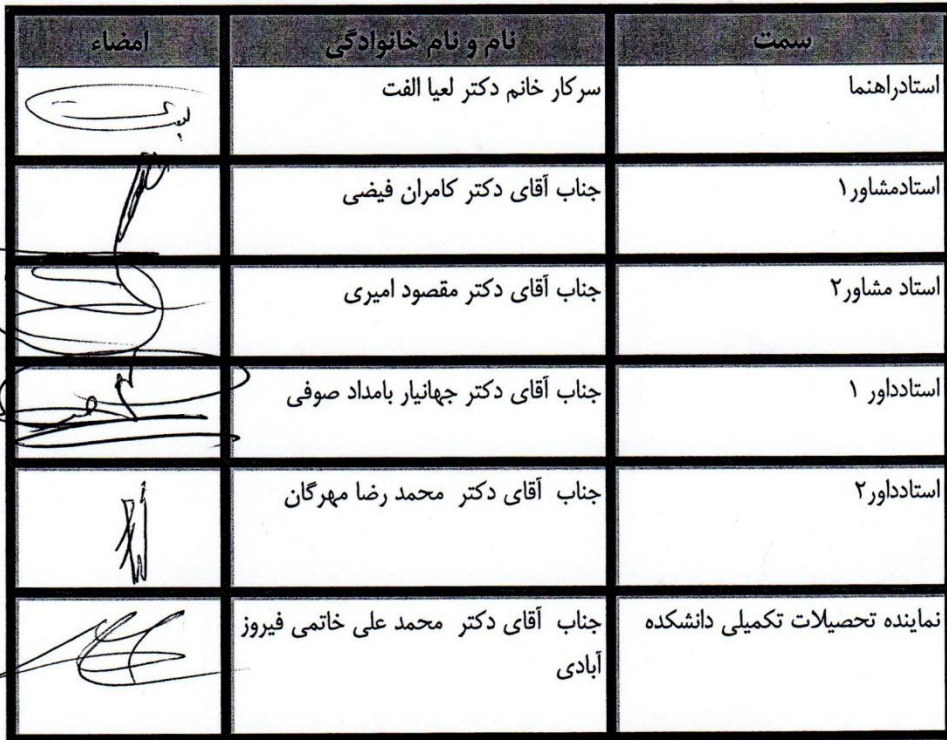 سمت نام و نام خانوادگی امضاء
استادراهنما سرکار خانم دکتر لعیا الفت
استادمشاور۱ جناب آقای دکتر کامران فیضی
استاد مشاور۲ جناب آقای دکتر مقصود امیری
استادداور ۱ جناب آقای دکتر جهانیار بامداد صوفی
استادداور۲ جناب آقای دکتر محمد رضا مهرگان
نماینده تحصیلات تکمیلی دانشکده جناب آقای دکتر محمد علی خاتمی فیروز
آبادی